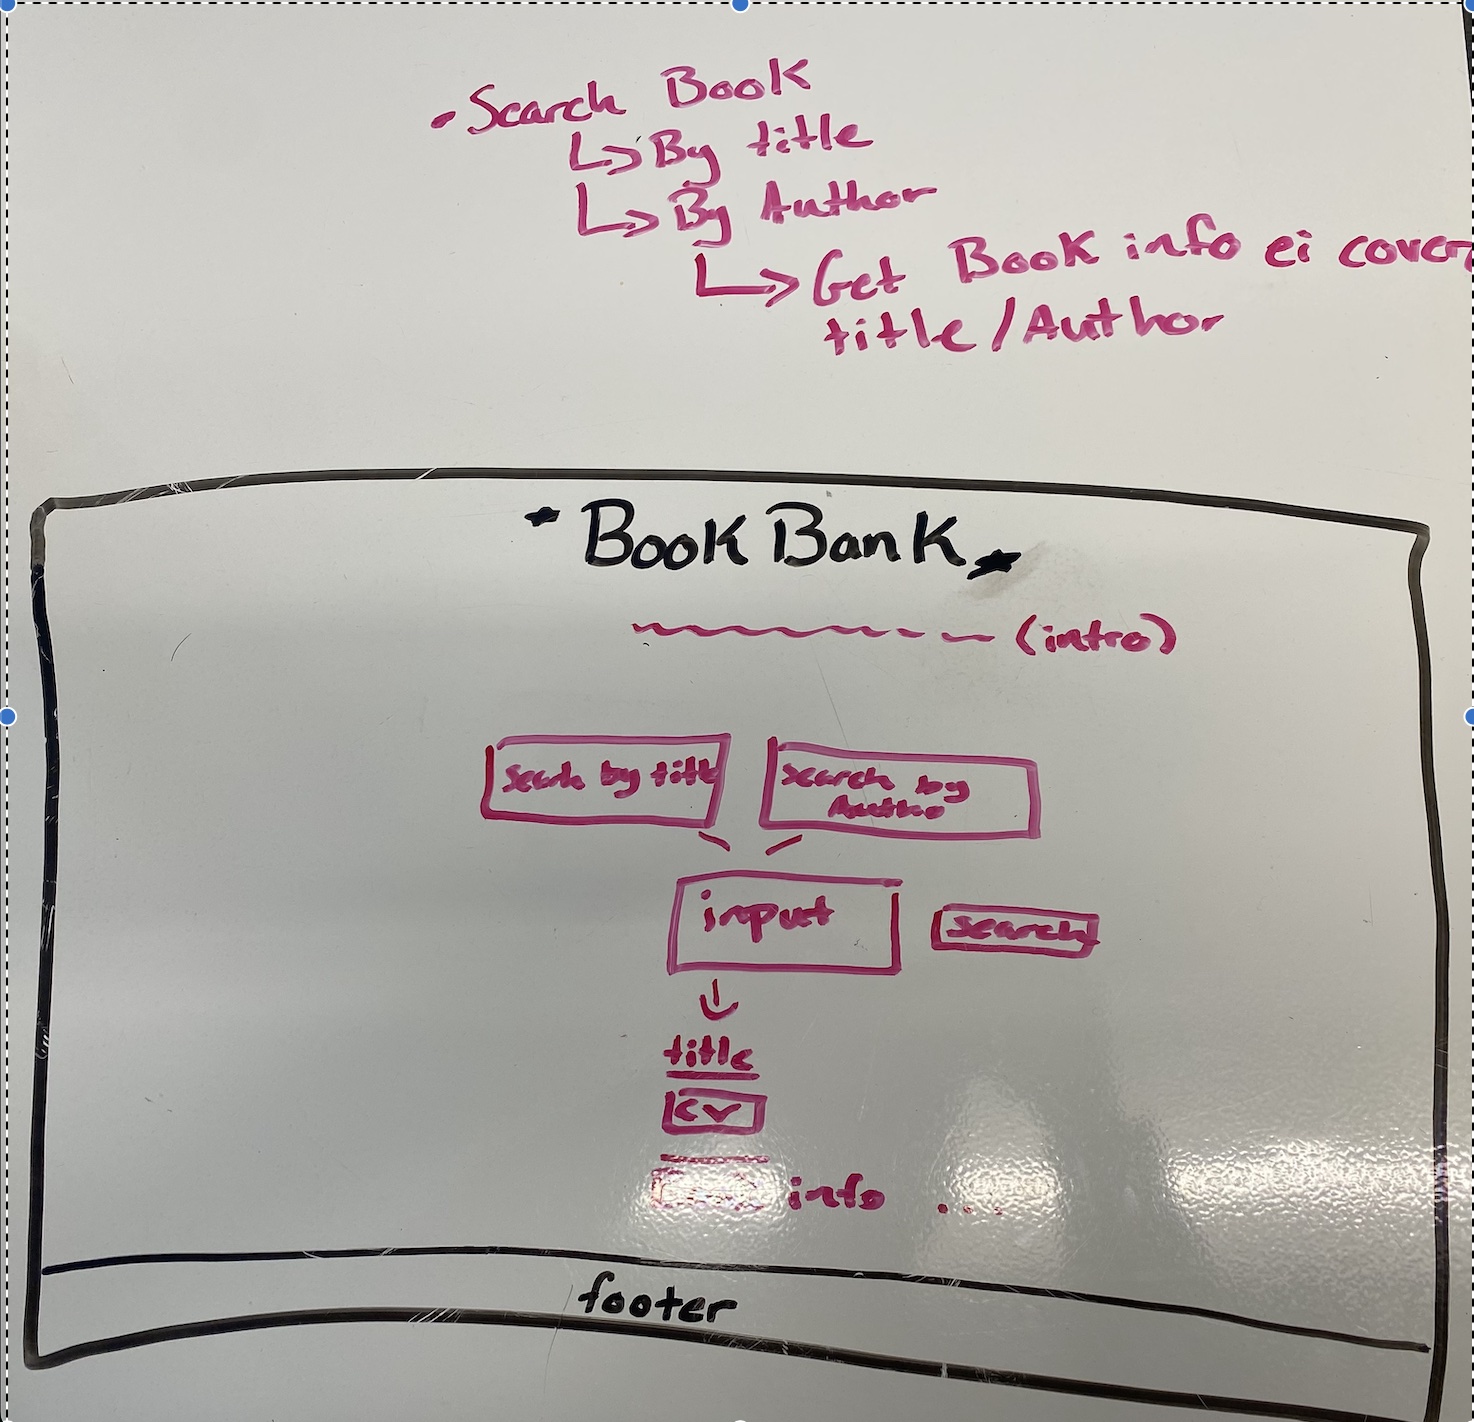 Search Book
By title
By Author
Get Book info ei cover,
title/Author
Book Bank
(intro)
Search by title
search by
Autho
input
search
title
cv
info ...
footer